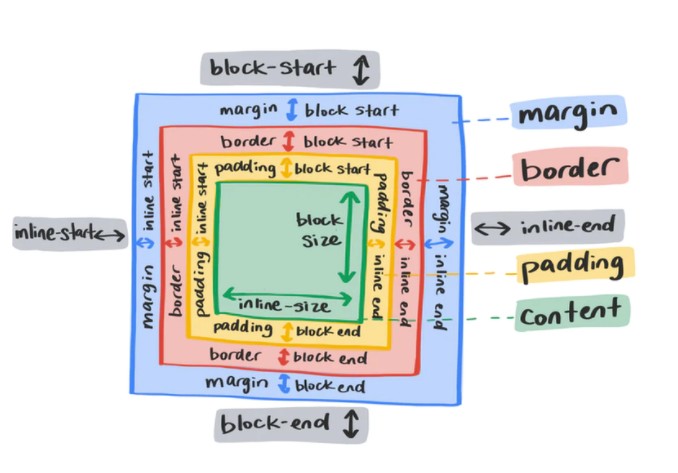 block-start
margin block start
border block start
padding block start
margin inline start
border inline start
padding inline start
inline-start
block
size
inline-size
padding inline end
border inline end
margin inline end
padding block end
border block end
margin block end
block-end
margin
border
inline-end
padding
content